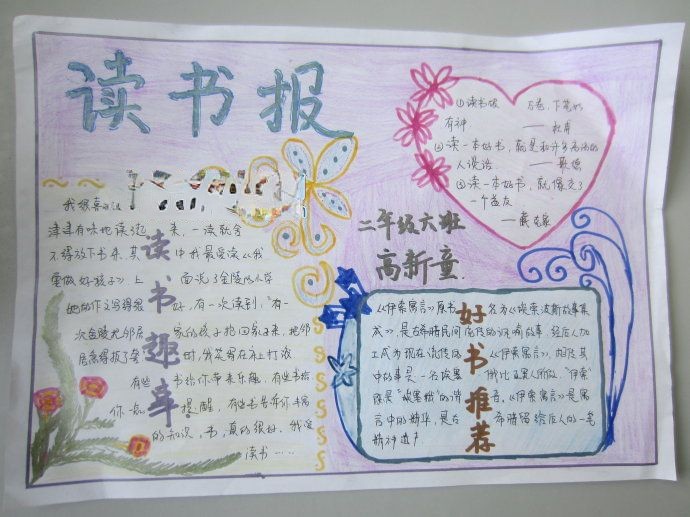 读书报
我很喜
津津有味地读起来，一读就舍
不得放下书来，其中我最爱读《我
要做好孩子》上面说了金陵
她的作文写得很好，有一次读到，“有一
时，我笑得在床上打滚
有些书给你带来乐趣，有些书给
你一些提醒，有些书告诉你丰富
的知识，书，真的很好，我爱
读书……
读书趣事
①读书破万卷，下笔如
有神
——杜甫
②读一本好书，就是和许多高尚的
人谈话
③读一本好书，就像交了
一个益友
二年级六班
高新童
《伊索寓言》原书名为《埃索波斯故事集
成》，是古希腊民间流传的讽喻故事，经后人加
工成为现在流传的《伊索寓言》，
中的故事是一名埃塞俄比亚黑人所做，“伊索”
既是“埃塞俄”的谐音，《伊索寓言》是寓
言中的精华，是古希腊留给后人的一笔
精神遗产
好书推荐